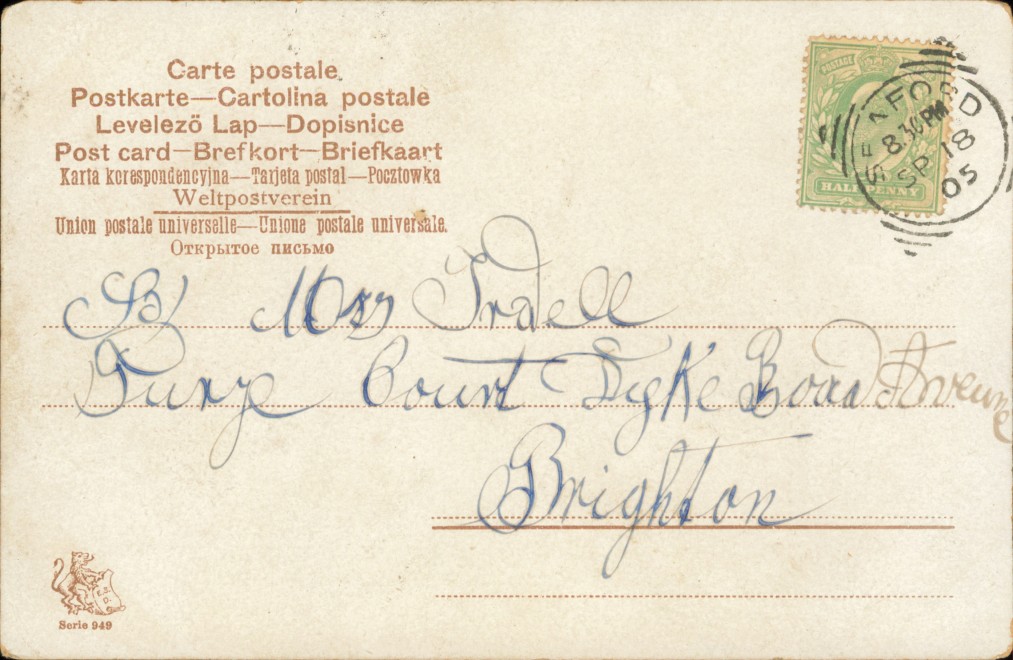 Carte postale
Postkarte—Cartolina postale
Levelező Lap—Dopisnice
Post card—Brefkort—Briefkaart
Karta korespondencyjna—Tarjeta postal—Pocztowka
Weltpostverein
Union postale universelle—Unione postale universale.
Открытое письмо
POSTAGE
HALFPENNY
SEAFORD
8.30PM
SP 18
05
Court Dyke Road Avenue
Brighton
E.S.
D.
Serie 949